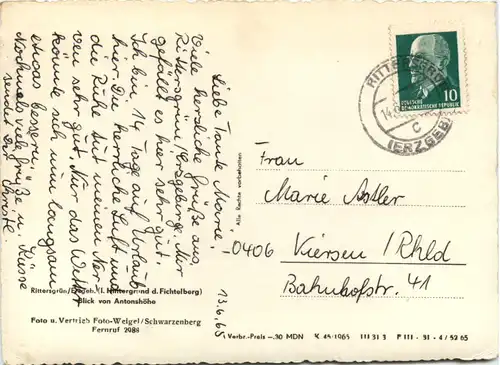 Liebe Tante Marie!
Viele herzliche Grüße aus
Rittersgrün/Erzgebirge. Mir
gefällt es hier sehr gut.
Ich bin 14 Tage auf Urlaub
hier. Die herrliche Luft und
die Ruhe tut meinen Ner-
ven sehr gut. Nur das Wetter
könnte sich nun langsam
etwas bessern.
Nochmals viele Grüße u. Küsse
sendet Dir Christe.
13.6.65
Rittersgrün/Erzgeb. (i. Hintergrund d. Fichtelberg)
Blick von Antonshöhe
Foto u. Vertrieb Foto-Weigel/Schwarzenberg
Fernruf 2988
Alle Rechte vorbehalten:
RITTERSGRÜN
14
c
(ERZGEB)
10
DEUTSCHE
DEMOKRATISCHE REPUBLIK
Frau
Marie Astler
0406 Viersen/Rhld
Bahnhofstr. 41
Verbr.-Preis -.30 MDN K 45/1965 III 31 3 P III - 31 - 4/52 65